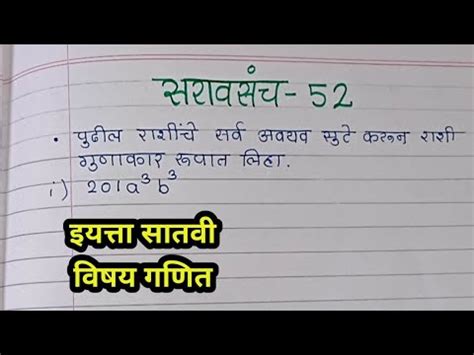 सरावसंच - 52
• पुढील राशींचे सर्व अवयव सुटे करून राशी
गुणाकार रूपात लिहा.
i) 201a³b³
इयत्ता सातवी
विषय गणित